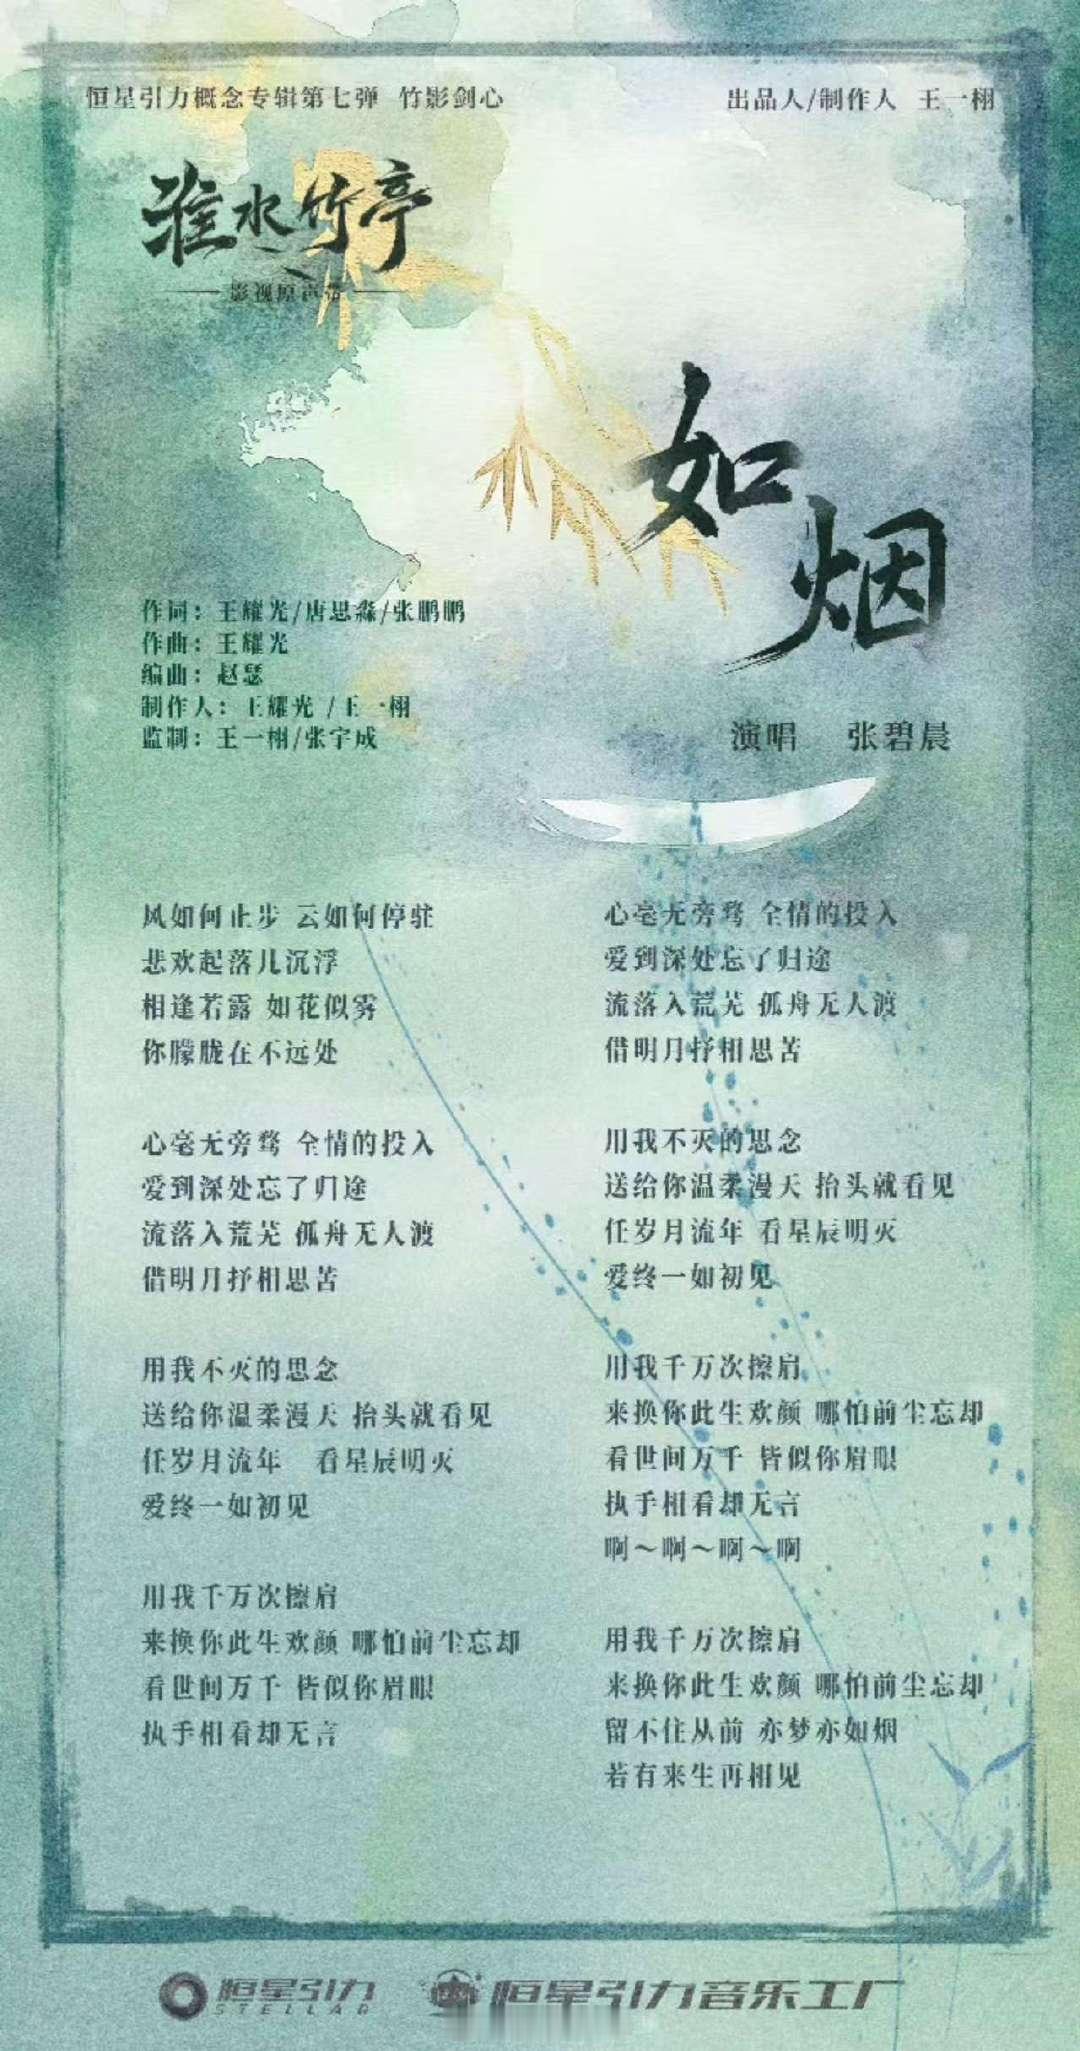 恒星引力概念专辑第七弹 竹影剑心
出品人/制作人 王一栩
淮水竹亭
影视原声带
如烟
作词：王耀光/唐思淼/张鹏鹏
作曲：王耀光
编曲：赵瑟
制作人：王耀光/王一栩
监制：王一栩/张宇成
演唱 张碧晨
风如何止步 云如何停驻
悲欢起落几沉浮
相逢若露 如花似雾
你朦胧在不远处
心毫无旁骛 全情的投入
爱到深处忘了归途
流落入荒芜 孤舟无人渡
借明月抒相思苦
用我不灭的思念
送给你温柔漫天 抬头就看见
任岁月流年 看星辰明灭
爱终一如初见
用我千万次擦肩
来换你此生欢颜 哪怕前尘忘却
看世间万千 皆似你眉眼
执手相看却无言
心毫无旁骛 全情的投入
爱到深处忘了归途
流落入荒芜 孤舟无人渡
借明月抒相思苦
用我不灭的思念
送给你温柔漫天 抬头就看见
任岁月流年 看星辰明灭
爱终一如初见
用我千万次擦肩
来换你此生欢颜 哪怕前尘忘却
看世间万千 皆似你眉眼
执手相看却无言
啊～啊～啊～啊
用我千万次擦肩
来换你此生欢颜 哪怕前尘忘却
留不住从前 亦梦亦如烟
若有来生再相见
恒星引力
STELLAR
恒星引力音乐工厂